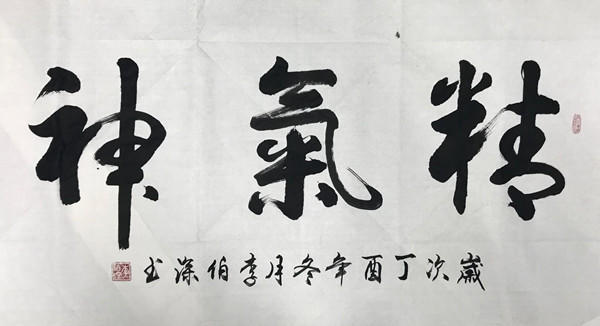 精氣神
歲次丁酉年冬月李伯深书